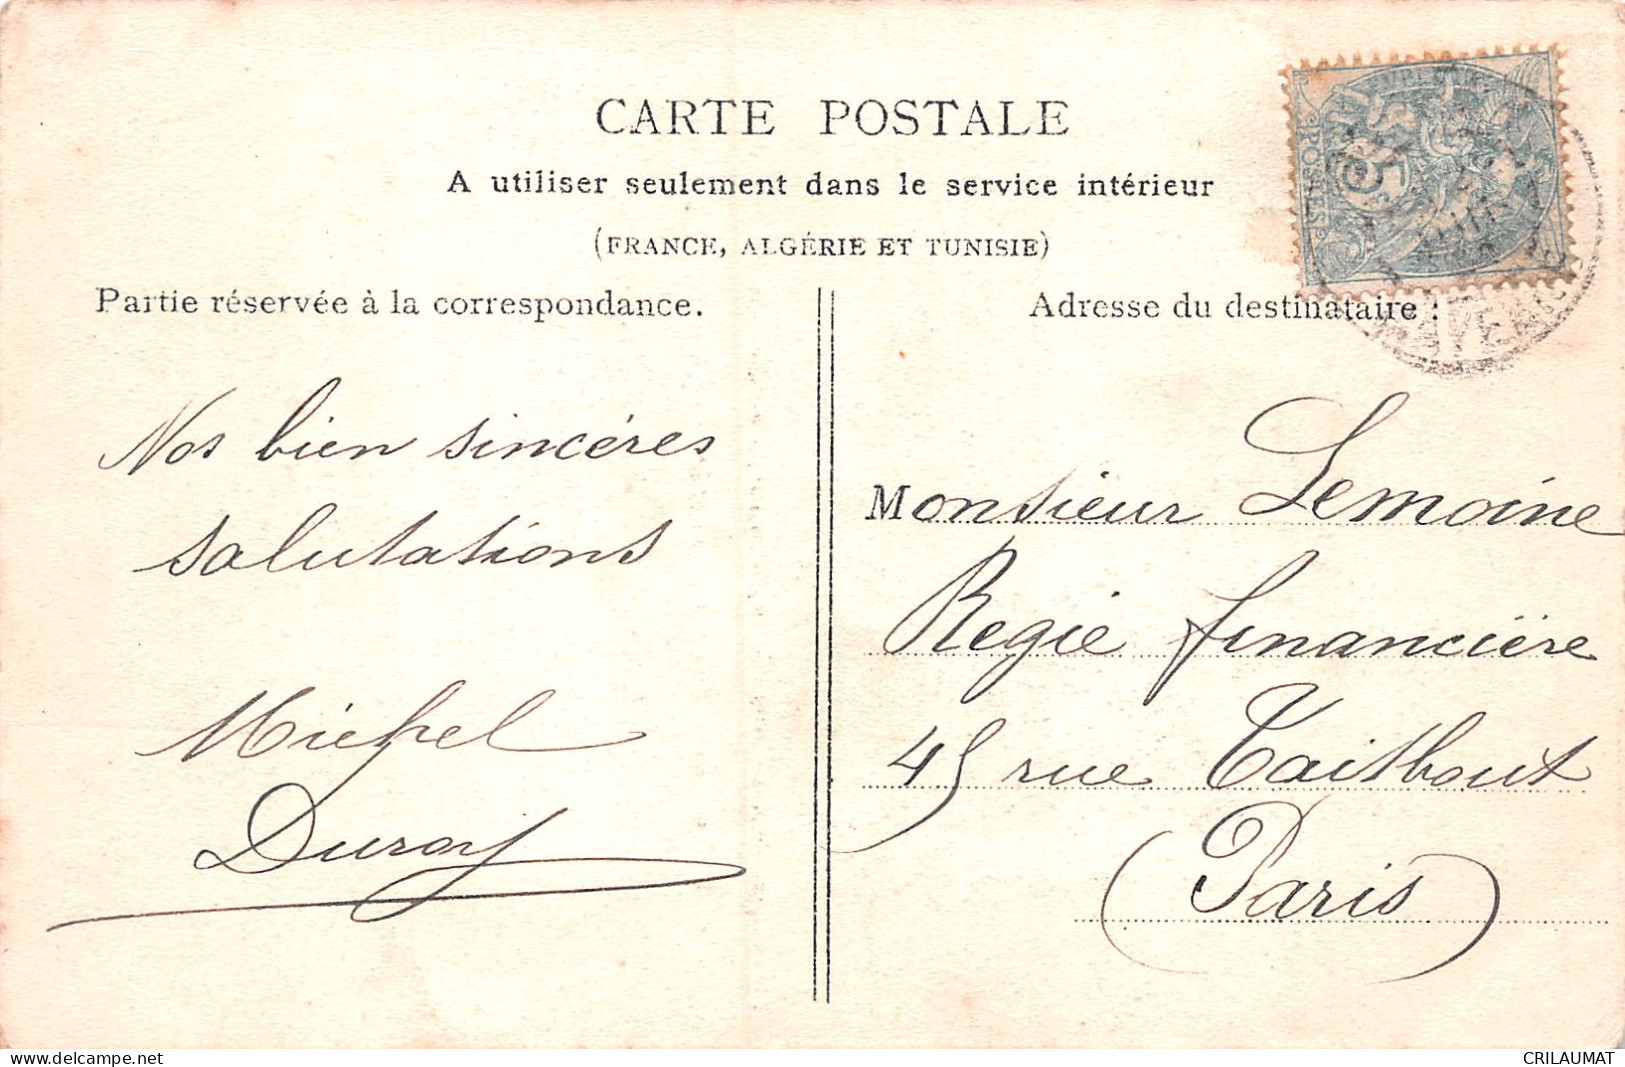 CARTE POSTALE
A utiliser seulement dans le service intérieur
(FRANCE, ALGÉRIE ET TUNISIE)
Partie réservée à la correspondance.
Adresse du destinataire :
POSTES
5
Nos bien sincéres
salutations
Michel
Duroy
Monsieur Lemoine
Regie financière
45 rue Taitbout
(Paris)
www.delcampe.net
CRILAUMAT